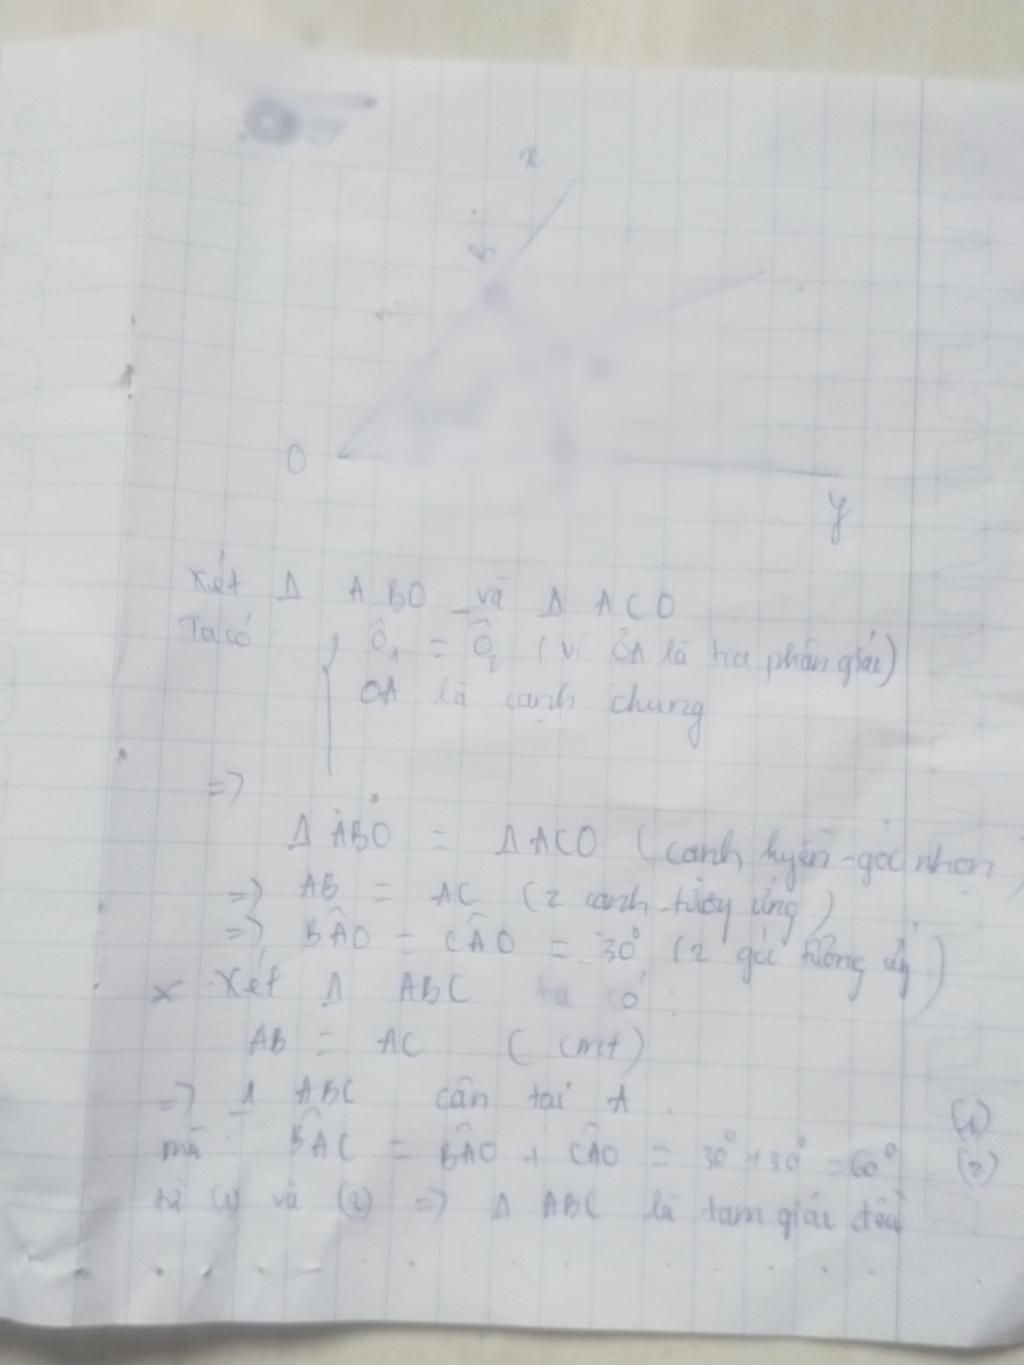 x
B
O
y
Xét Δ ABO và Δ ACO
Ta có: Ô₁ = Ô₂ (vì OA là tia phân giác)
OA là cạnh chung
=>
Δ ABO = Δ ACO (cạnh huyền-góc nhọn)
=> AB = AC (2 cạnh tương ứng)
=> BÂO = CÂO = 30° (2 góc tương ứng)
x Xét Δ ABC ta có:
AB = AC (cmt)
=> Δ ABC cân tại A (1)
mà: BÂC = BÂO + CÂO = 30° + 30° = 60° (2)
từ (1) và (2) => Δ ABC là tam giác đều